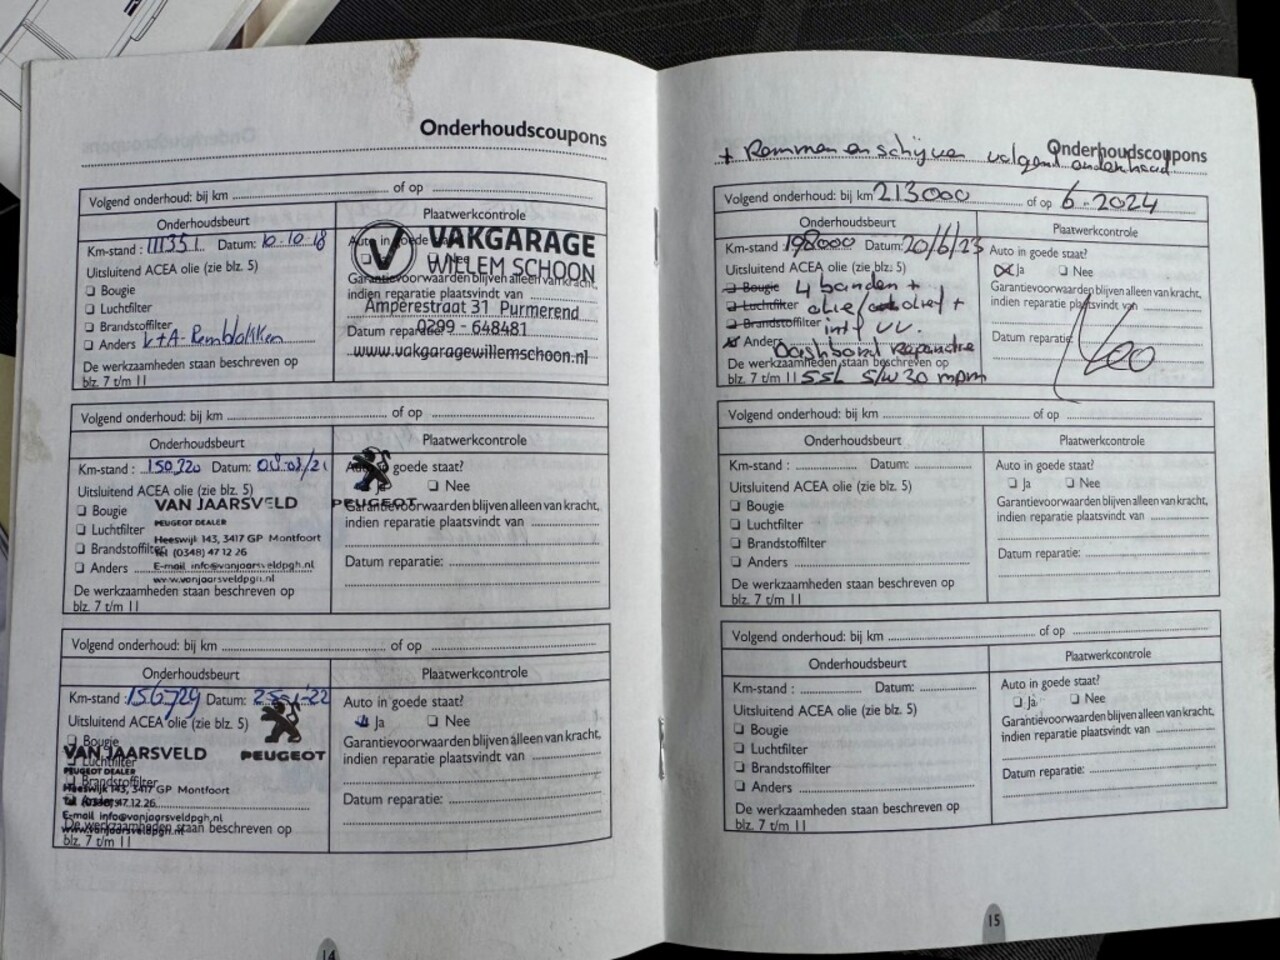 Onderhoudscoupons
Volgend onderhoud: bij km of op
Onderhoudsbeurt
Plaatwerkcontrole
Km-stand : 111351 Datum: 10-10-18
Auto in goede
Uitsluitend ACEA olie (zie blz. 5)
VAKGARAGE
WILLEM SCHOON
Bougie
Garantievoorwaarden blijven alleen van kracht,
Luchtfilter
indien reparatie plaatsvindt van
Amperestraat 31 Purmerend
Brandstoffilter
Datum reparatie:
0299 - 648481
Anders V+A-Remblokken
www.vakgaragewillemschoon.nl
De werkzaamheden staan beschreven op
blz. 7 t/m 11
Volgend onderhoud: bij km of op
Onderhoudsbeurt
Plaatwerkcontrole
Km-stand : 150720 Datum: /21
Auto in goede staat?
Uitsluitend ACEA olie (zie blz. 5)
Ja Nee
PEUGEOT
Bougie
VAN JAARSVELD
Garantievoorwaarden blijven alleen van kracht,
PEUGEOT DEALER
Luchtfilter
indien reparatie plaatsvindt van
Heeswijk 143, 3417 GP Montfoort
Brandstoffilter
Tel (0348) 47 12 26
Datum reparatie:
Anders
E-mail info@vanjaarsveldpgh.nl
www.vanjaarsveldpgh.nl
De werkzaamheden staan beschreven op
blz. 7 t/m 11
Volgend onderhoud: bij km of op
Onderhoudsbeurt
Plaatwerkcontrole
Km-stand : 156729 Datum: 22
Auto in goede staat?
Uitsluitend ACEA olie (zie blz. 5)
Ja Nee
Bougie
VAN JAARSVELD
PEUGEOT
Garantievoorwaarden blijven alleen van kracht,
Luchtfilter
indien reparatie plaatsvindt van
PEUGEOT DEALER
Brandstoffilter
Heeswijk 143, 3417 GP Montfoort
Datum reparatie:
Tel (0348) 47 12 26
Anders
E-mail info@vanjaarsveldpgh.nl
www.vanjaarsveldpgh.nl
De werkzaamheden staan beschreven op
blz. 7 t/m 11
14
Onderhoudscoupons
+ Remmen en schijven volgend onderhoud
Volgend onderhoud: bij km 213000 of op 6-2024
Onderhoudsbeurt
Plaatwerkcontrole
Km-stand : 198000 Datum: 20/6/23
Auto in goede staat?
Uitsluitend ACEA olie (zie blz. 5)
Ja Nee
Bougie 4 banden +
Garantievoorwaarden blijven alleen van kracht,
Luchtfilter olie/ +
indien reparatie plaatsvindt van
Brandstoffilter VV.
Datum reparatie:
Anders Dashbord Reparatie
De werkzaamheden staan beschreven op
blz. 7 t/m 11 5SL 5/W30 mpm
Volgend onderhoud: bij km of op
Onderhoudsbeurt
Plaatwerkcontrole
Km-stand : Datum:
Auto in goede staat?
Uitsluitend ACEA olie (zie blz. 5)
Ja Nee
Bougie
Garantievoorwaarden blijven alleen van kracht,
Luchtfilter
indien reparatie plaatsvindt van
Brandstoffilter
Datum reparatie:
Anders
De werkzaamheden staan beschreven op
blz. 7 t/m 11
Volgend onderhoud: bij km of op
Onderhoudsbeurt
Plaatwerkcontrole
Km-stand : Datum:
Auto in goede staat?
Uitsluitend ACEA olie (zie blz. 5)
Ja Nee
Bougie
Garantievoorwaarden blijven alleen van kracht,
Luchtfilter
indien reparatie plaatsvindt van
Brandstoffilter
Datum reparatie:
Anders
De werkzaamheden staan beschreven op
blz. 7 t/m 11
15